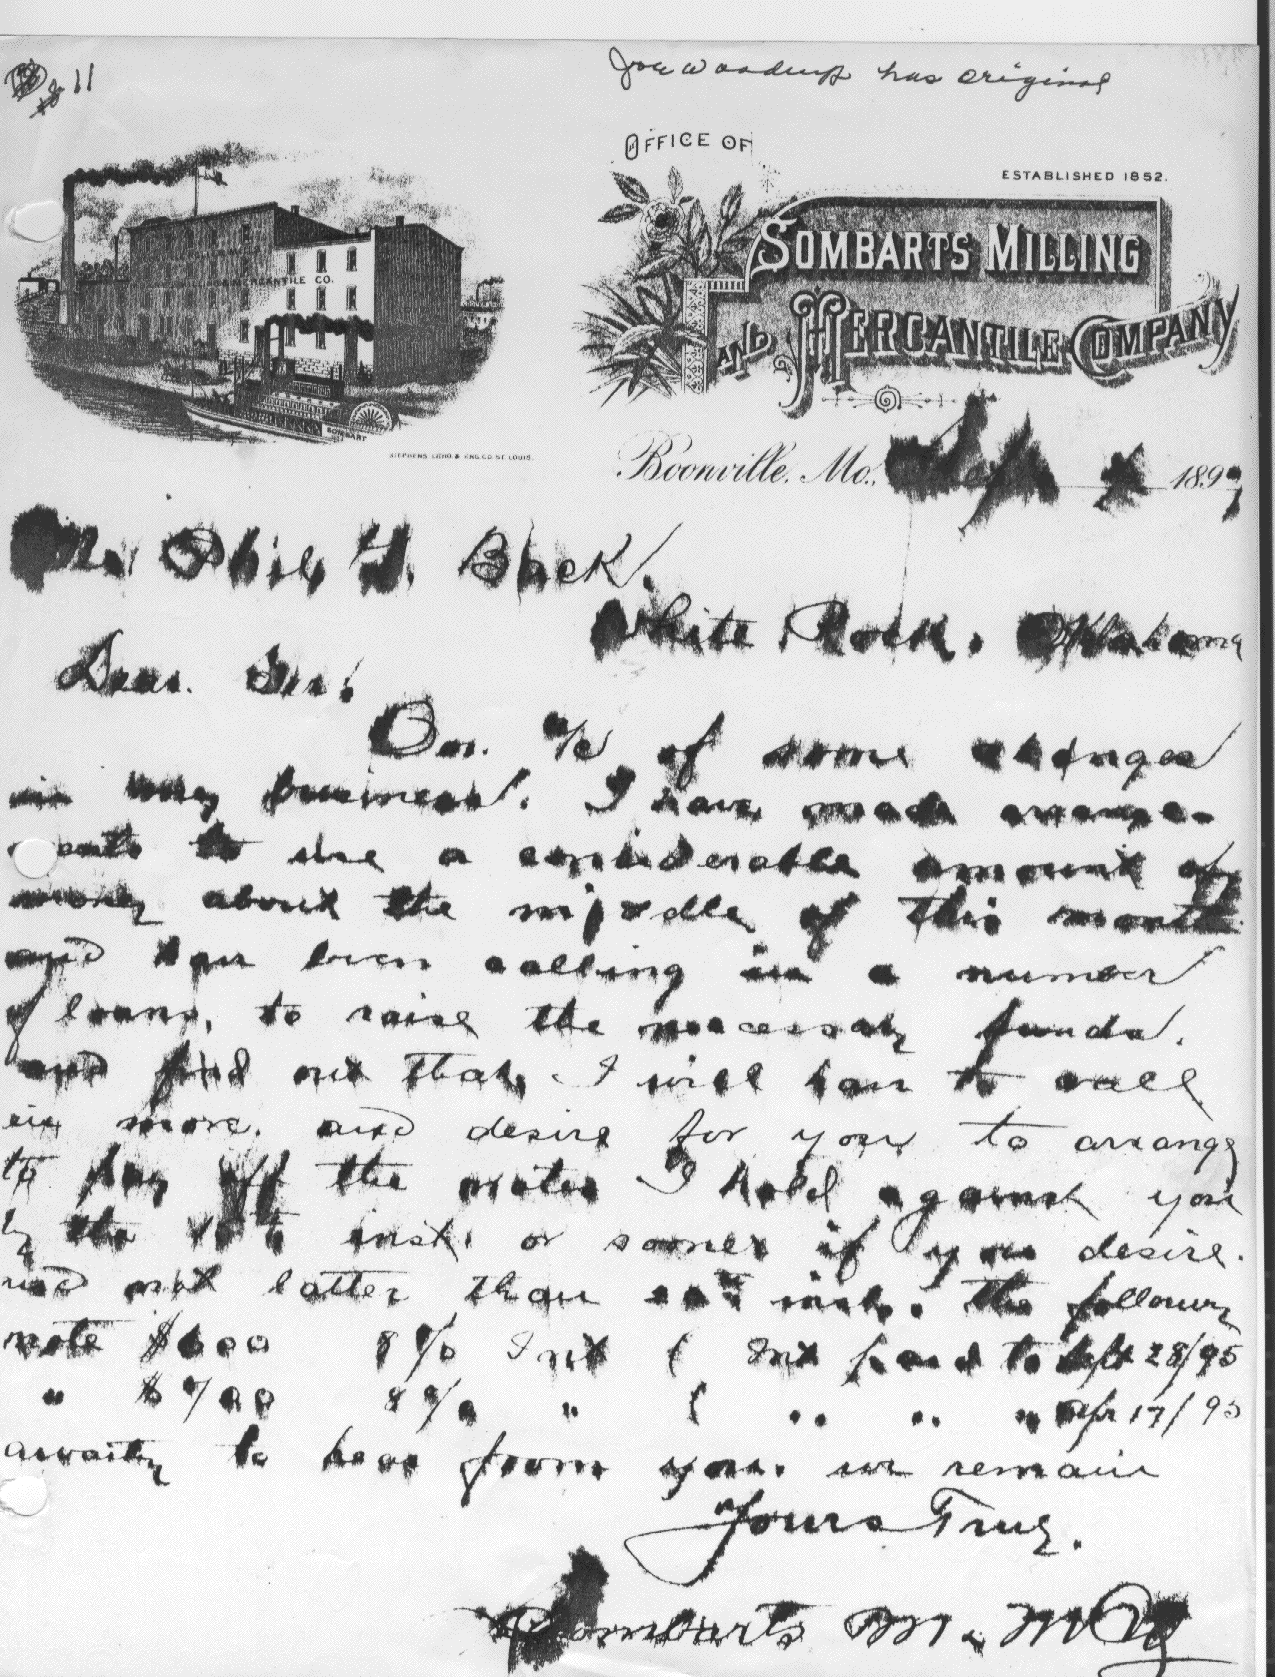 11
has original
OFFICE OF
ESTABLISHED 1852.
SOMBARTS MILLING
AND MERCANTILE COMPANY
MERCANTILE CO.
BOMBART
STEPHENS LITHO & ENG. CO. ST. LOUIS.
Boonville, Mo., 189
Mr. Phil H. Back.
White Rock. Oklahoma
Dear. Sir!
On. a/c of some changes
in my business. I have made arrange-
ments to use a considerable amount of
money about the middle of this month
and have been calling in a number
of loans, to raise the necessary funds.
and find out that I will have to call
in more. and desire for you to arrange
to pay off the notes I hold against you
by the 10th inst. or sooner if you desire.
and not latter than inst. the following
note $600 8% Int ( Int paid to Sept 28/95
" $700 8% " ( " " " Apr 17/95
awaiting to hear from you. we remain
Yours Truly.
Sombarts M. & M. Co